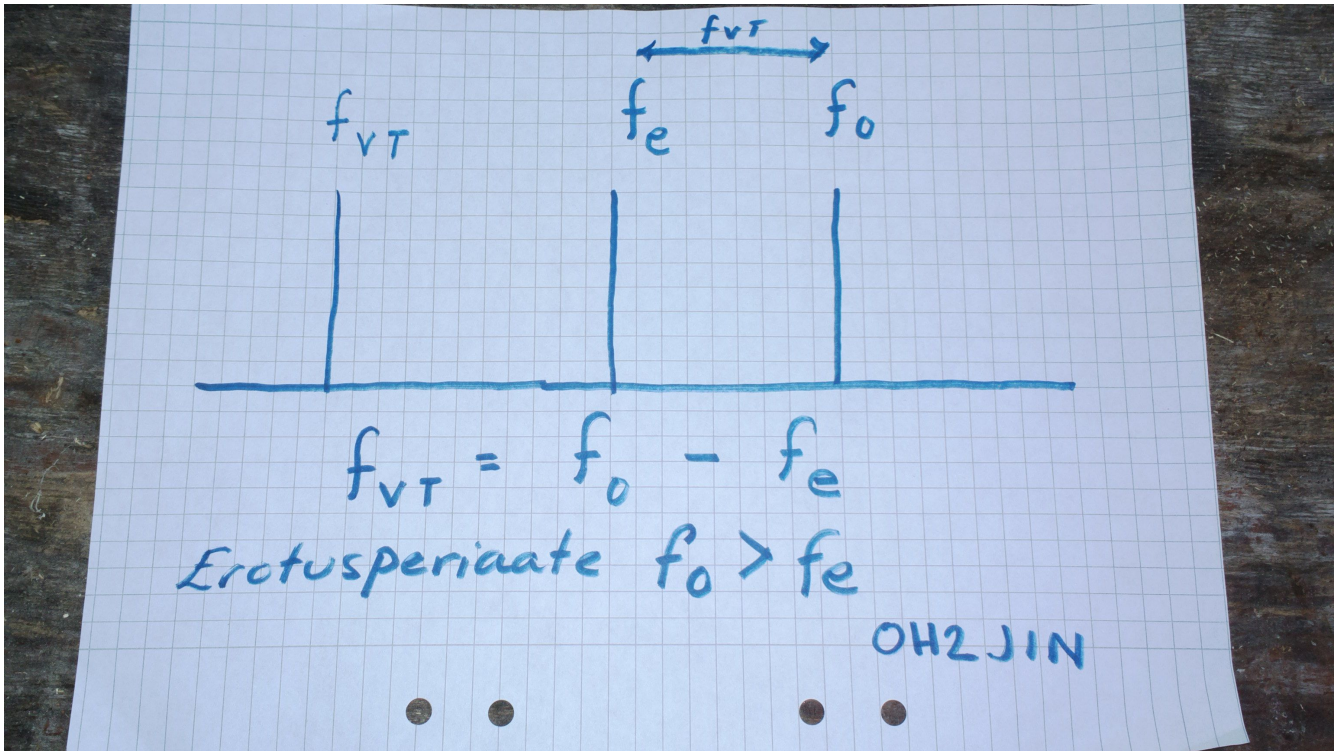 fVT
fVT fe fo
fVT = fo - fe
Erotusperiaate fo > fe
OH2JIN